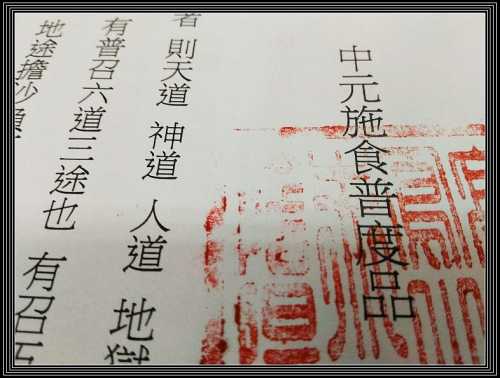 中元施食普度品
者 則天道 神道 人道 地獄
有普召六道三途也 有召五
地途擔沙負